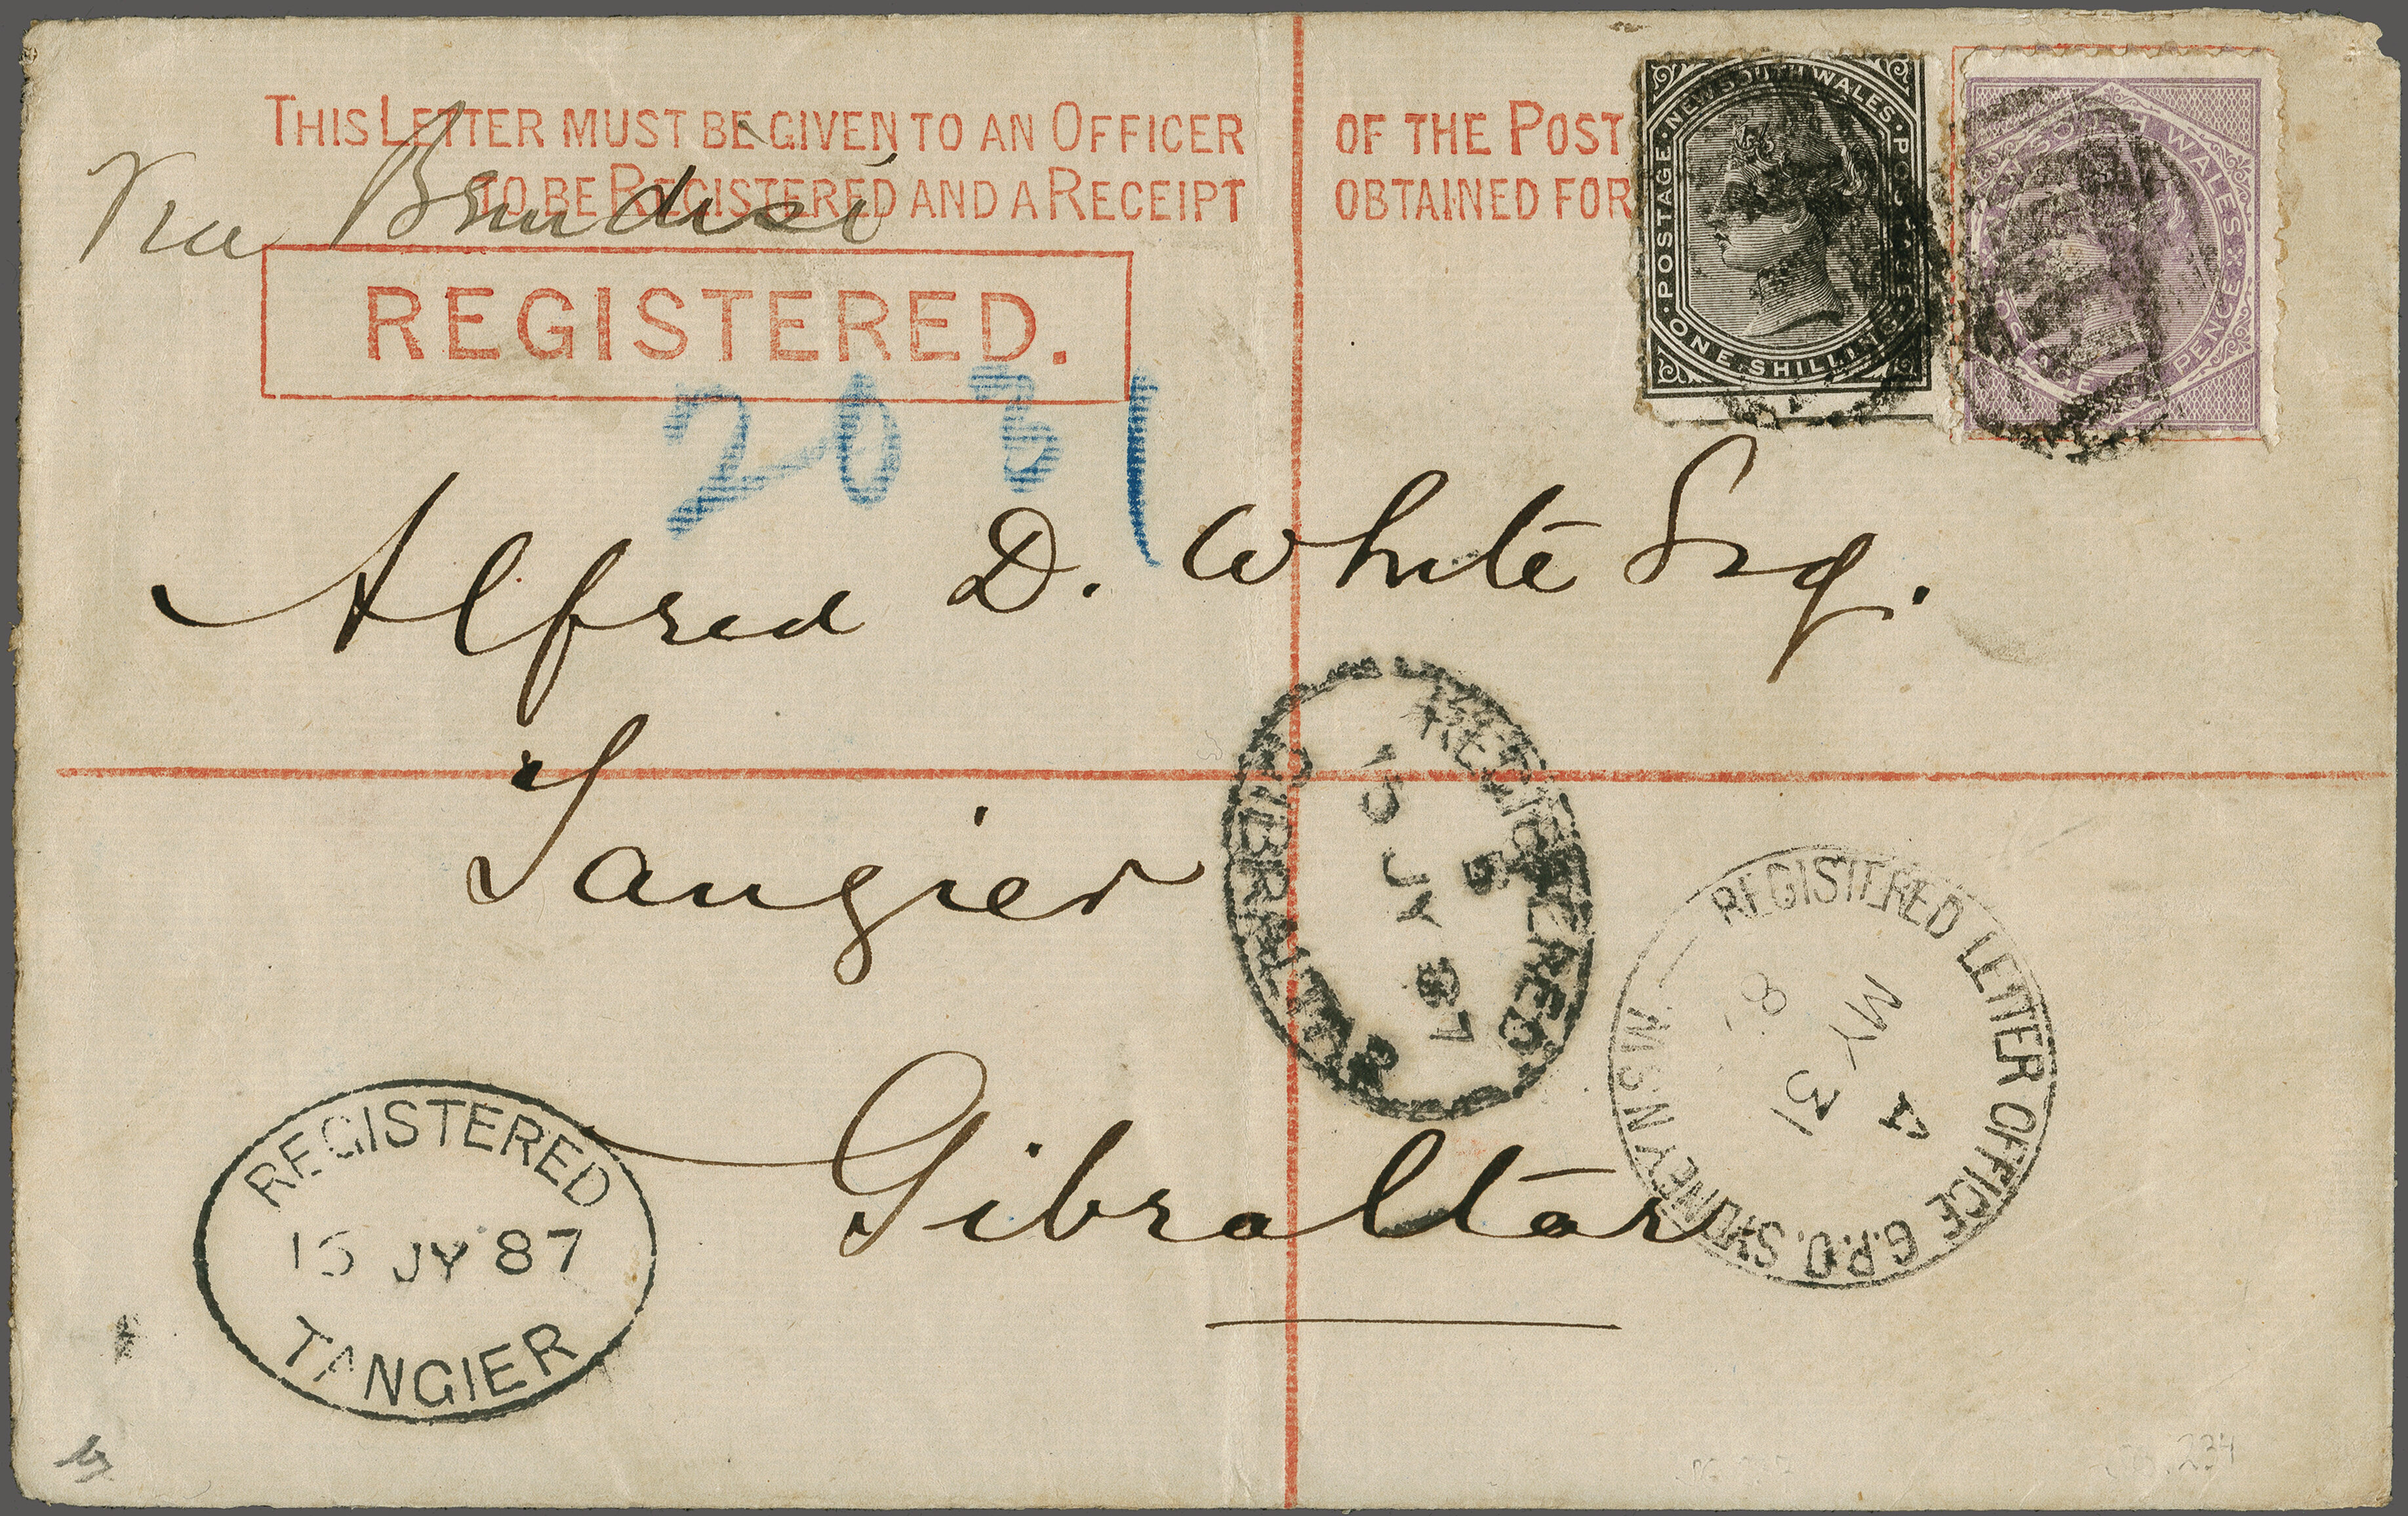 THIS LETTER MUST BE GIVEN TO AN OFFICER OF THE POST
TO BE REGISTERED AND A RECEIPT OBTAINED FOR
Via Brindisi
REGISTERED.
NEW SOUTH WALES · POSTAGE · ONE SHILLING · POSTAGE
SOUTH WALES POSTAGE PENCE
2031
Alfred D. White Esq.
Tangier
Gibraltar
REGISTERED
JY 87
GIBRALTAR
REGISTERED LETTER OFFICE G.P.O. SYDNEY N.S.W
A
MY 31
8
REGISTERED
15 JY 87
TANGIER
234